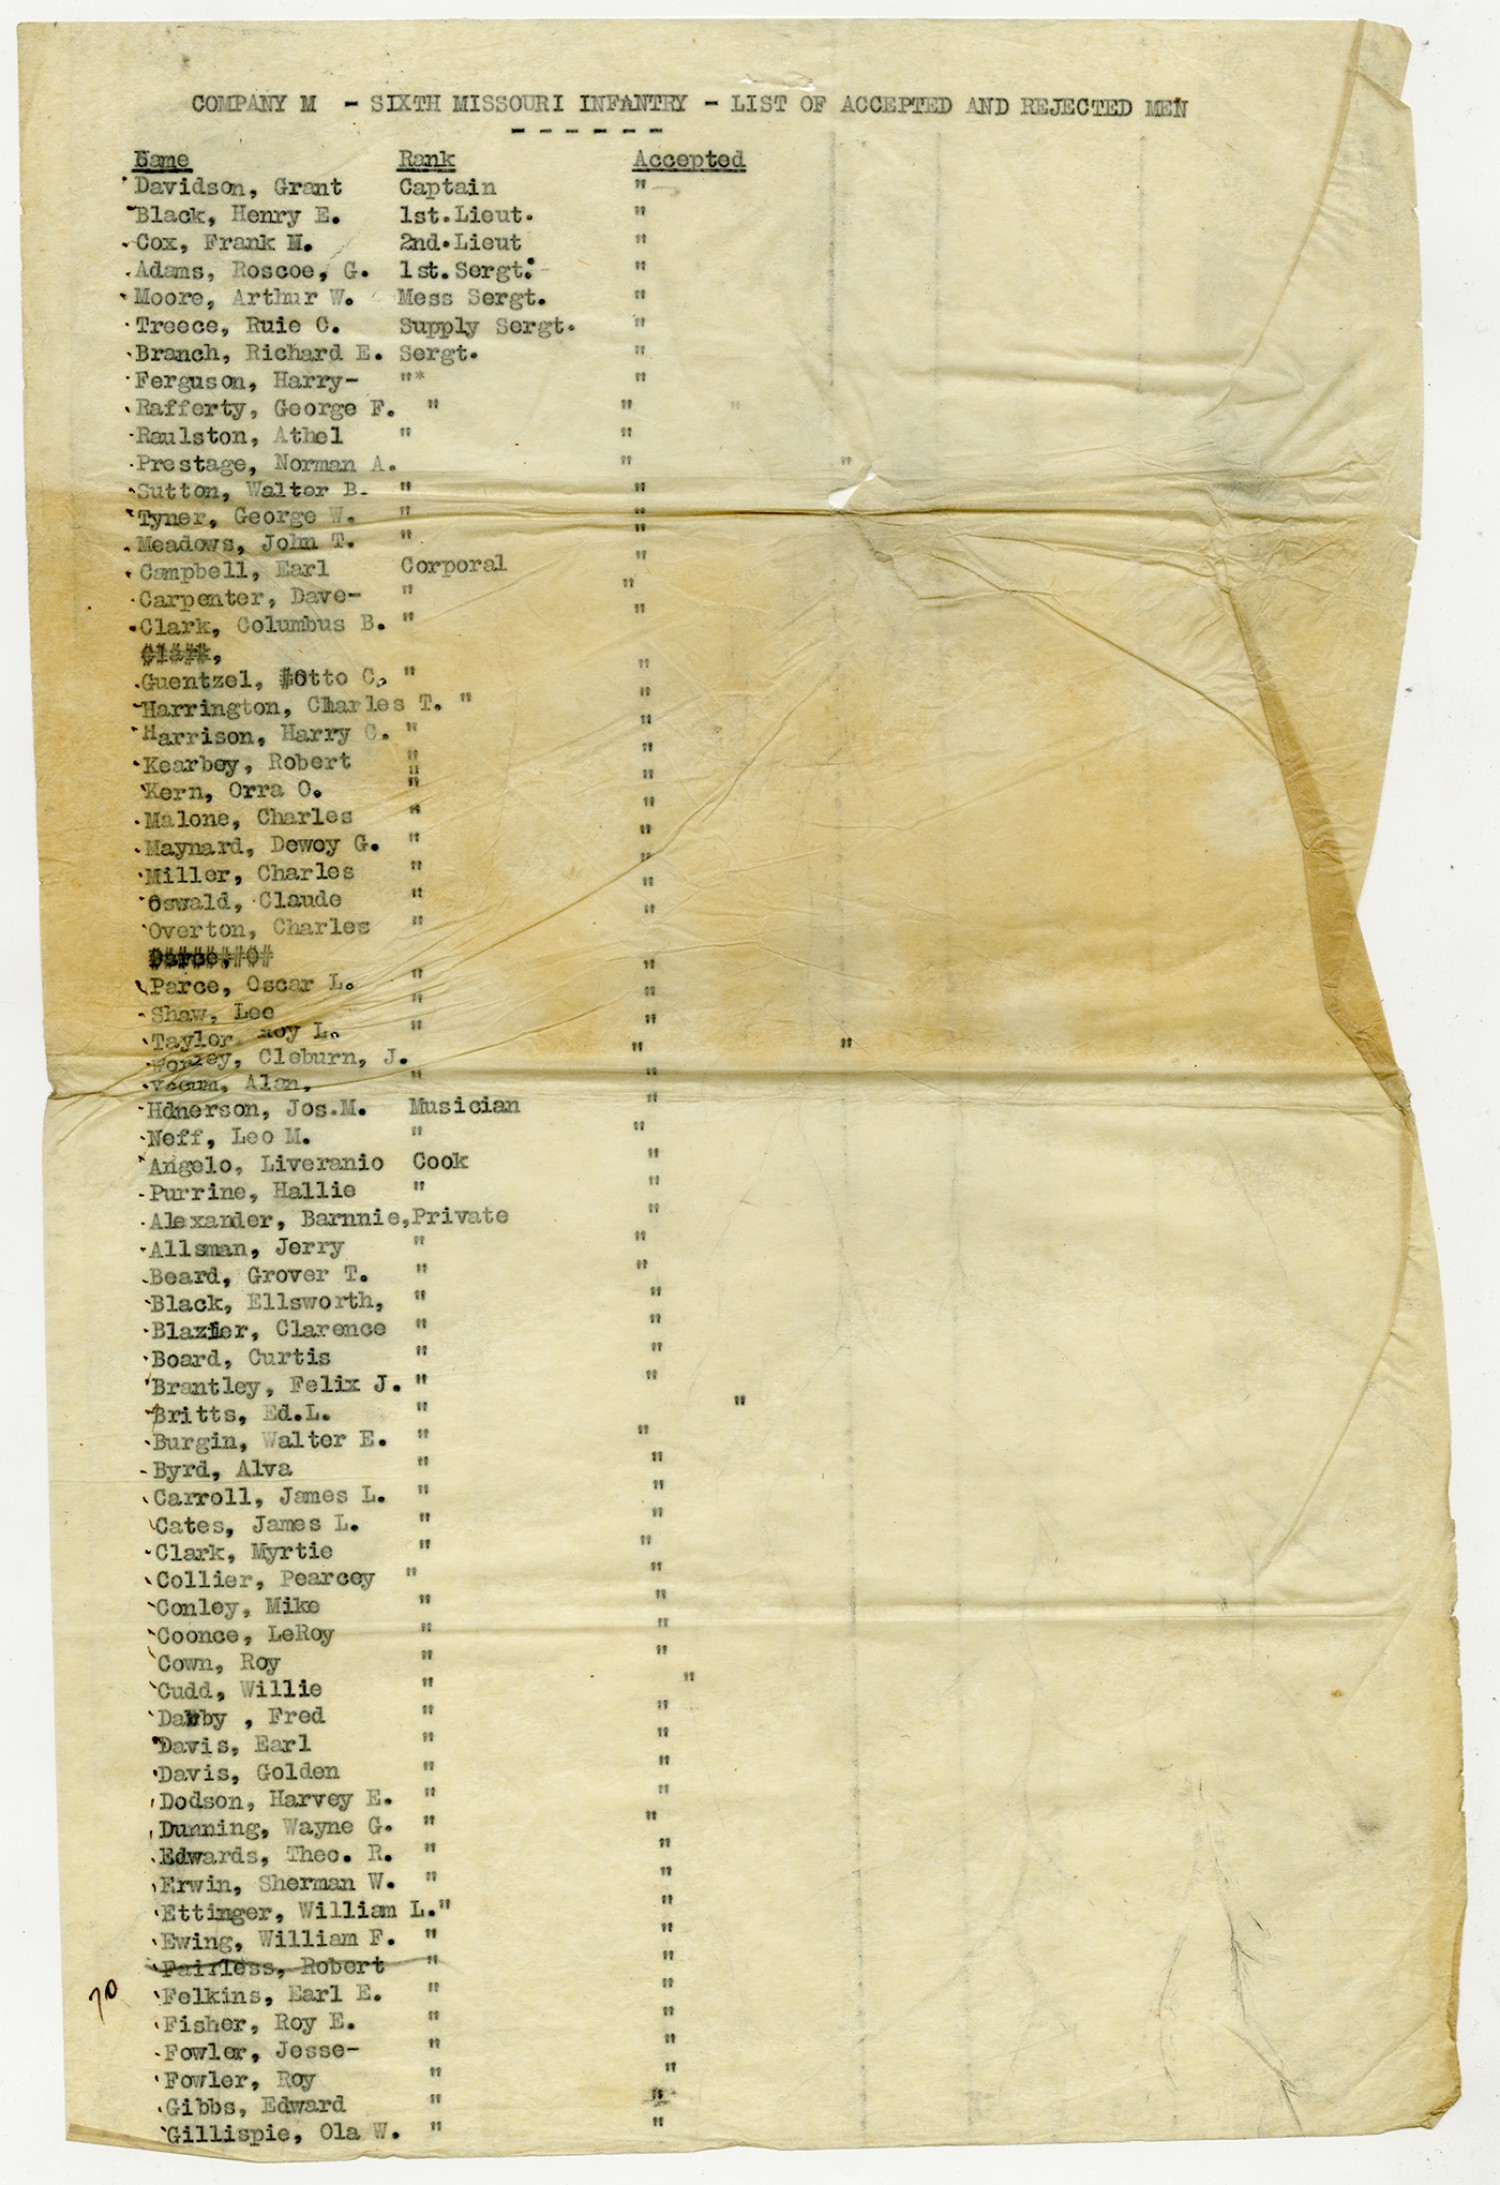 COMPANY M - SIXTH MISSOURI INFANTRY - LIST OF ACCEPTED AND REJECTED MEN
- - - - - -
Name Rank Accepted
Davidson, Grant Captain "
Black, Henry E. 1st.Lieut. "
Cox, Frank M. 2nd.Lieut "
Adams, Roscoe, G. 1st.Sergt. "
Moore, Arthur W. Mess Sergt. "
Treece, Ruie C. Supply Sergt. "
Branch, Richard E. Sergt. "
Ferguson, Harry- "* "
Rafferty, George F. " " "
Raulston, Athel " "
Prestage, Norman A. " "
Sutton, Walter B. " "
Tyner, George W. " "
Meadows, John T. " "
Campbell, Earl Corporal "
Carpenter, Dave- " "
Clark, Columbus B. " "
Guentzel, #Otto C. " "
Harrington, Charles T. " "
Harrison, Harry C. " "
Kearbey, Robert " "
Kern, Orra O. " "
Malone, Charles " "
Maynard, Dewey G. " "
Miller, Charles " "
Oswald, Claude " "
Overton, Charles " "
Parce, Oscar L. " "
Shaw, Lee " "
Taylor, Roy L. " "
Cleburn, J. " "
Yocum, Alan, " "
Hdnerson, Jos.M. Musician "
Neff, Leo M. " "
Angelo, Liveranio Cook "
Purrine, Hallie " "
Alexander, Barnnie,Private "
Allsman, Jerry " "
Beard, Grover T. " "
Black, Ellsworth, " "
Blazier, Clarence " "
Board, Curtis " "
Brantley, Felix J. " "
Britts, Ed.L. " "
Burgin, Walter E. " "
Byrd, Alva " "
Carroll, James L. " "
Cates, James L. " "
Clark, Myrtie " "
Collier, Pearcey " "
Conley, Mike " "
Coonce, LeRoy " "
Cown, Roy " "
Cudd, Willie " "
Darby , Fred " "
Davis, Earl " "
Davis, Golden " "
Dodson, Harvey E. " "
Dunning, Wayne G. " "
Edwards, Theo. R. " "
Erwin, Sherman W. " "
Ettinger, William L." "
Ewing, William F. " "
Fairless, Robert " "
70
Felkins, Earl E. " "
Fisher, Roy E. " "
Fowler, Jesse- " "
Fowler, Roy " "
Gibbs, Edward " "
Gillispie, Ola W. " "